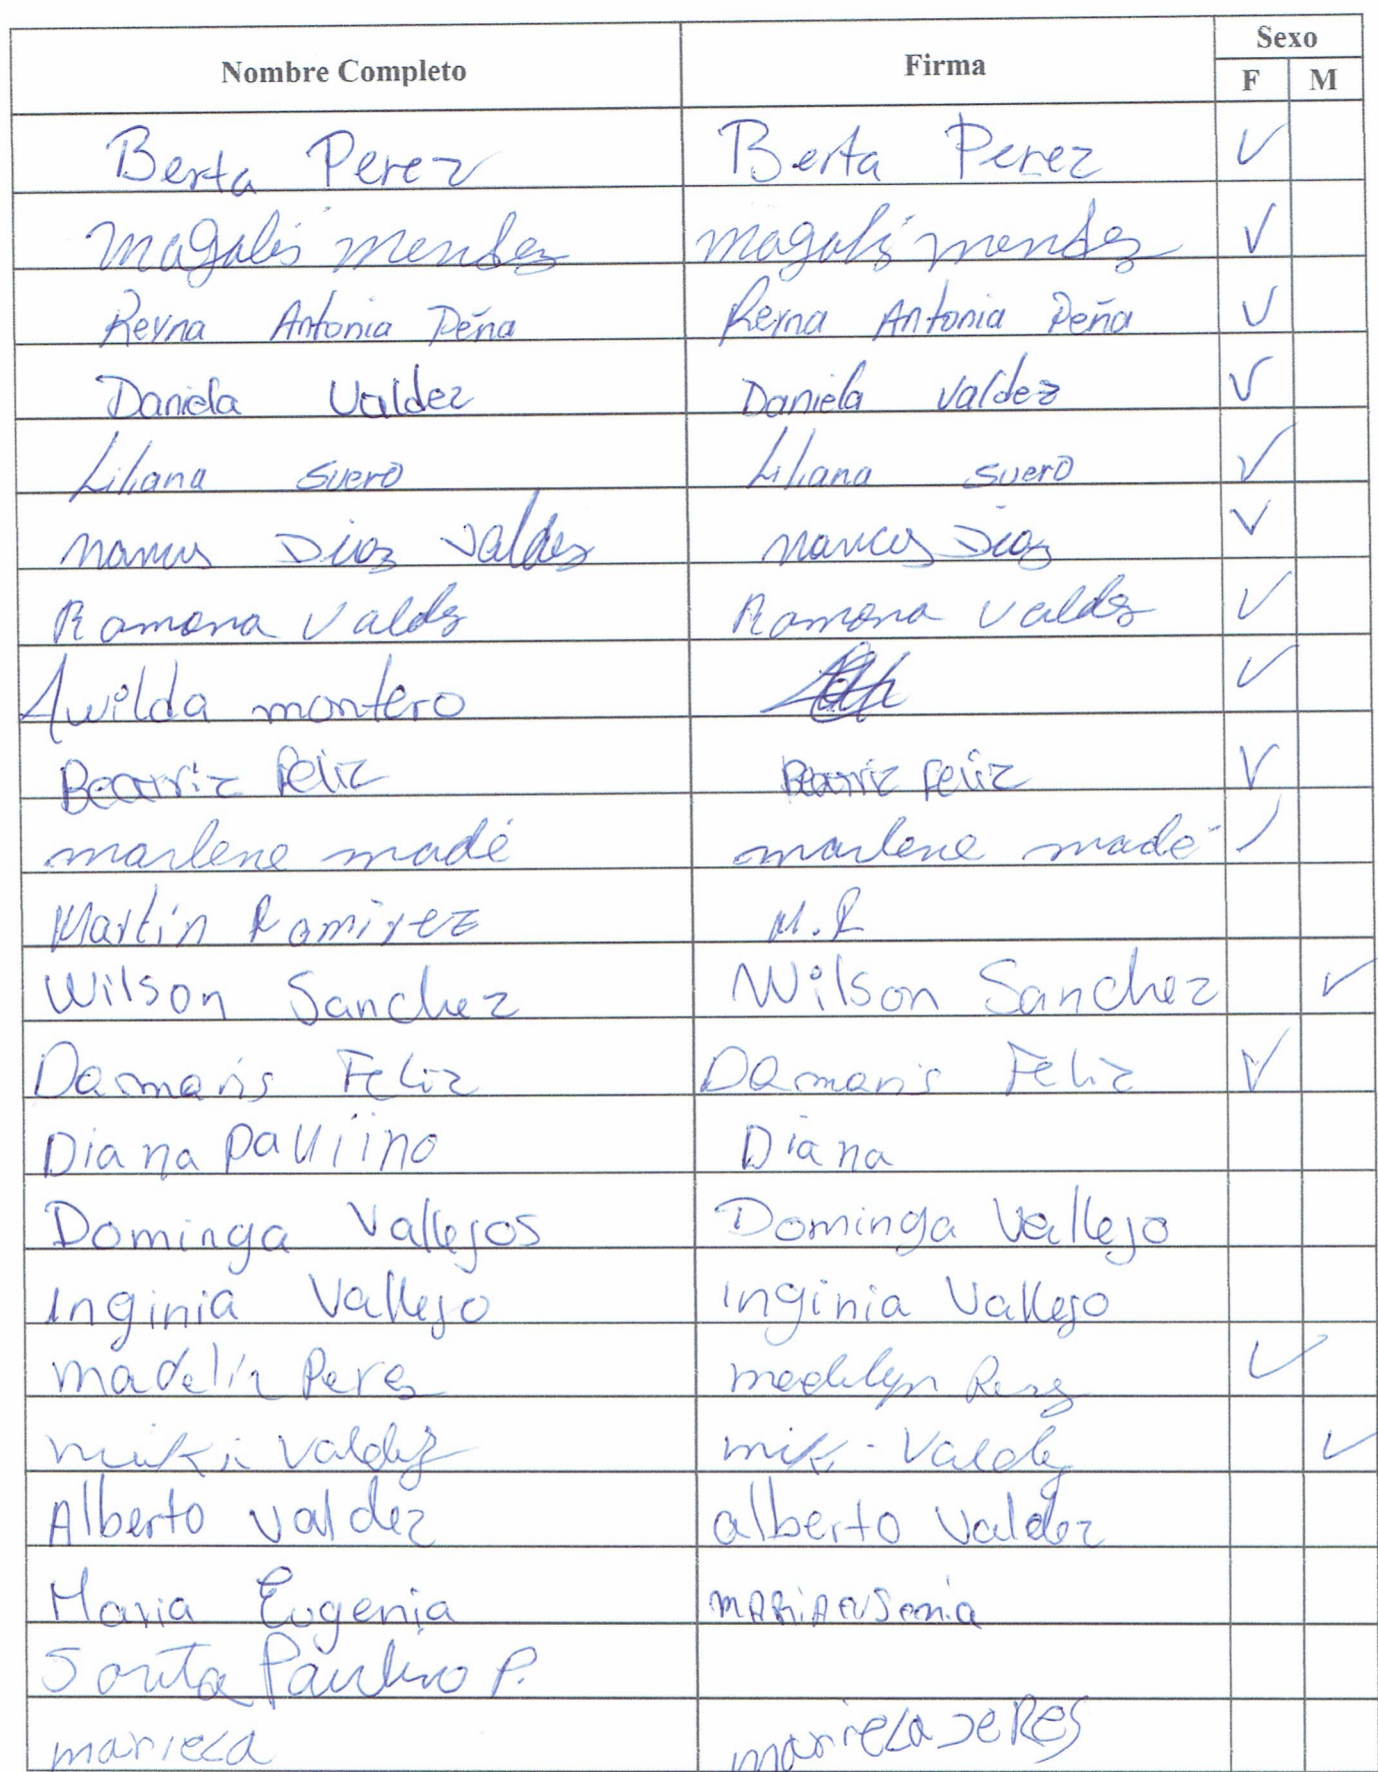 Nombre Completo Firma Sexo
F M
Berta Perez Berta Perez ✓
Magalis mendez magalis mendez ✓
Reyna Antonia Peña Reyna Antonia Peña ✓
Daniela Valdez Daniela Valdez ✓
Liliana Suero Liliana Suero ✓
Diaz Valdez Diaz ✓
Ramona Valdz Ramona Valdz ✓
Awilda montero ✓
Beatriz Feliz Beatriz Feliz ✓
marlene madé marlene madé
Martin Ramirez M.R
Wilson Sanchez Wilson Sanchez ✓
Damaris Feliz Damaris Feliz ✓
Diana Pauliino Diana
Dominga Vallejos Dominga Vallejo
Inginia Vallejo Inginia Vallejo
madelin Perez madelyn ✓
miki Valdez miki Valdez ✓
Alberto Valdez alberto Valdez
Maria Eugenia
Santa Paulino P.
mariela mariela JeRes